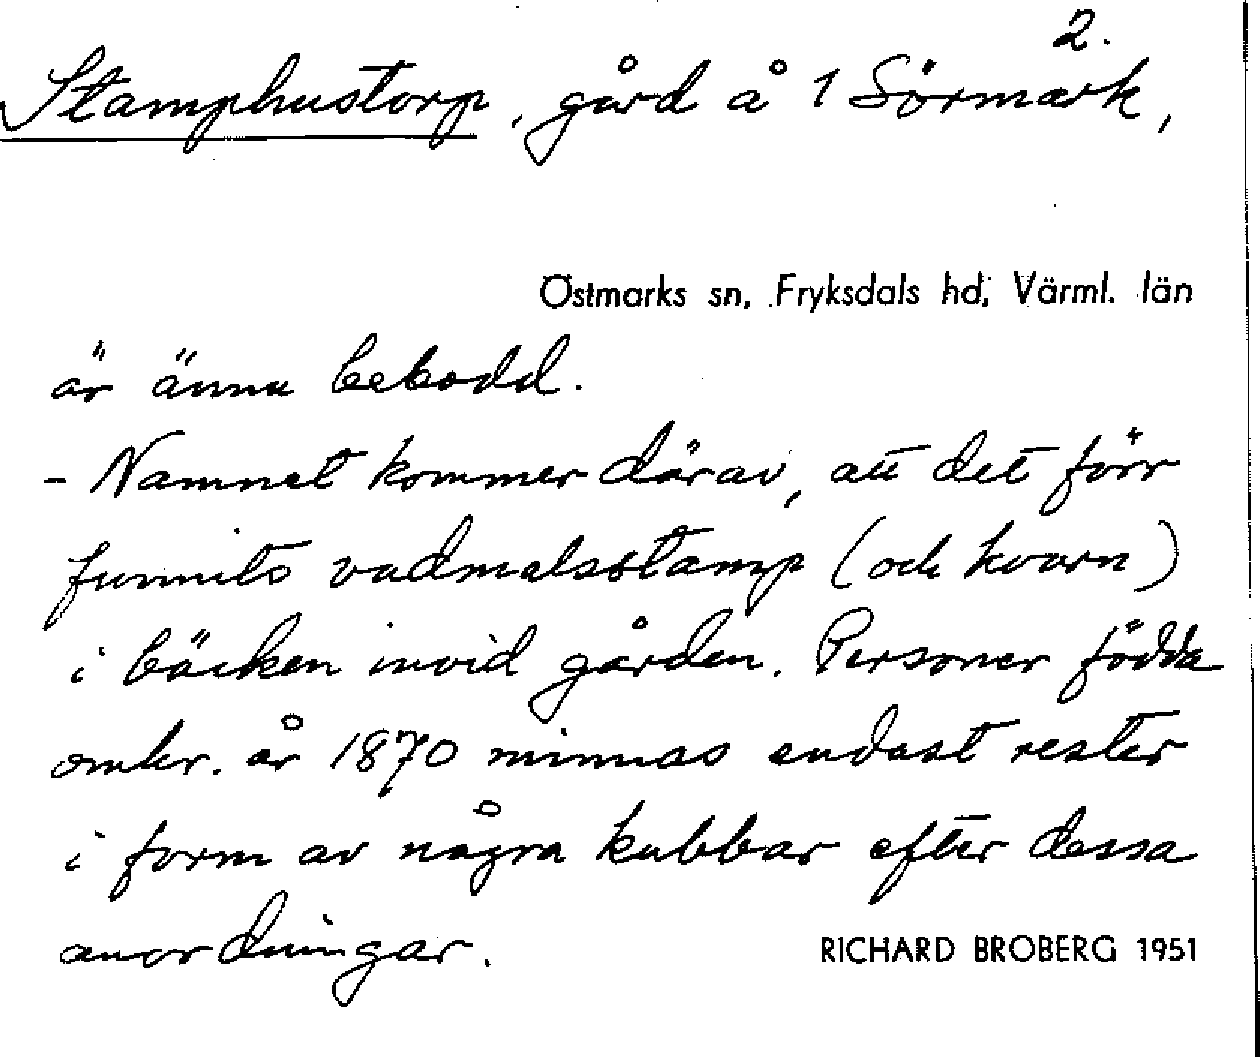 2.
Stamphustorp, gård å 1 Sörmark,
Östmarks sn, Fryksdals hd, Värml. län
är ännu bebodd.
- Namnet kommer därav, att det förr
funnits vadmalsstamp (och kvarn)
i bäcken invid gården. Personer födda
omkr. år 1870 minnas endast rester
i form av några kubbar efter dessa
anordningar.
RICHARD BROBERG 1951